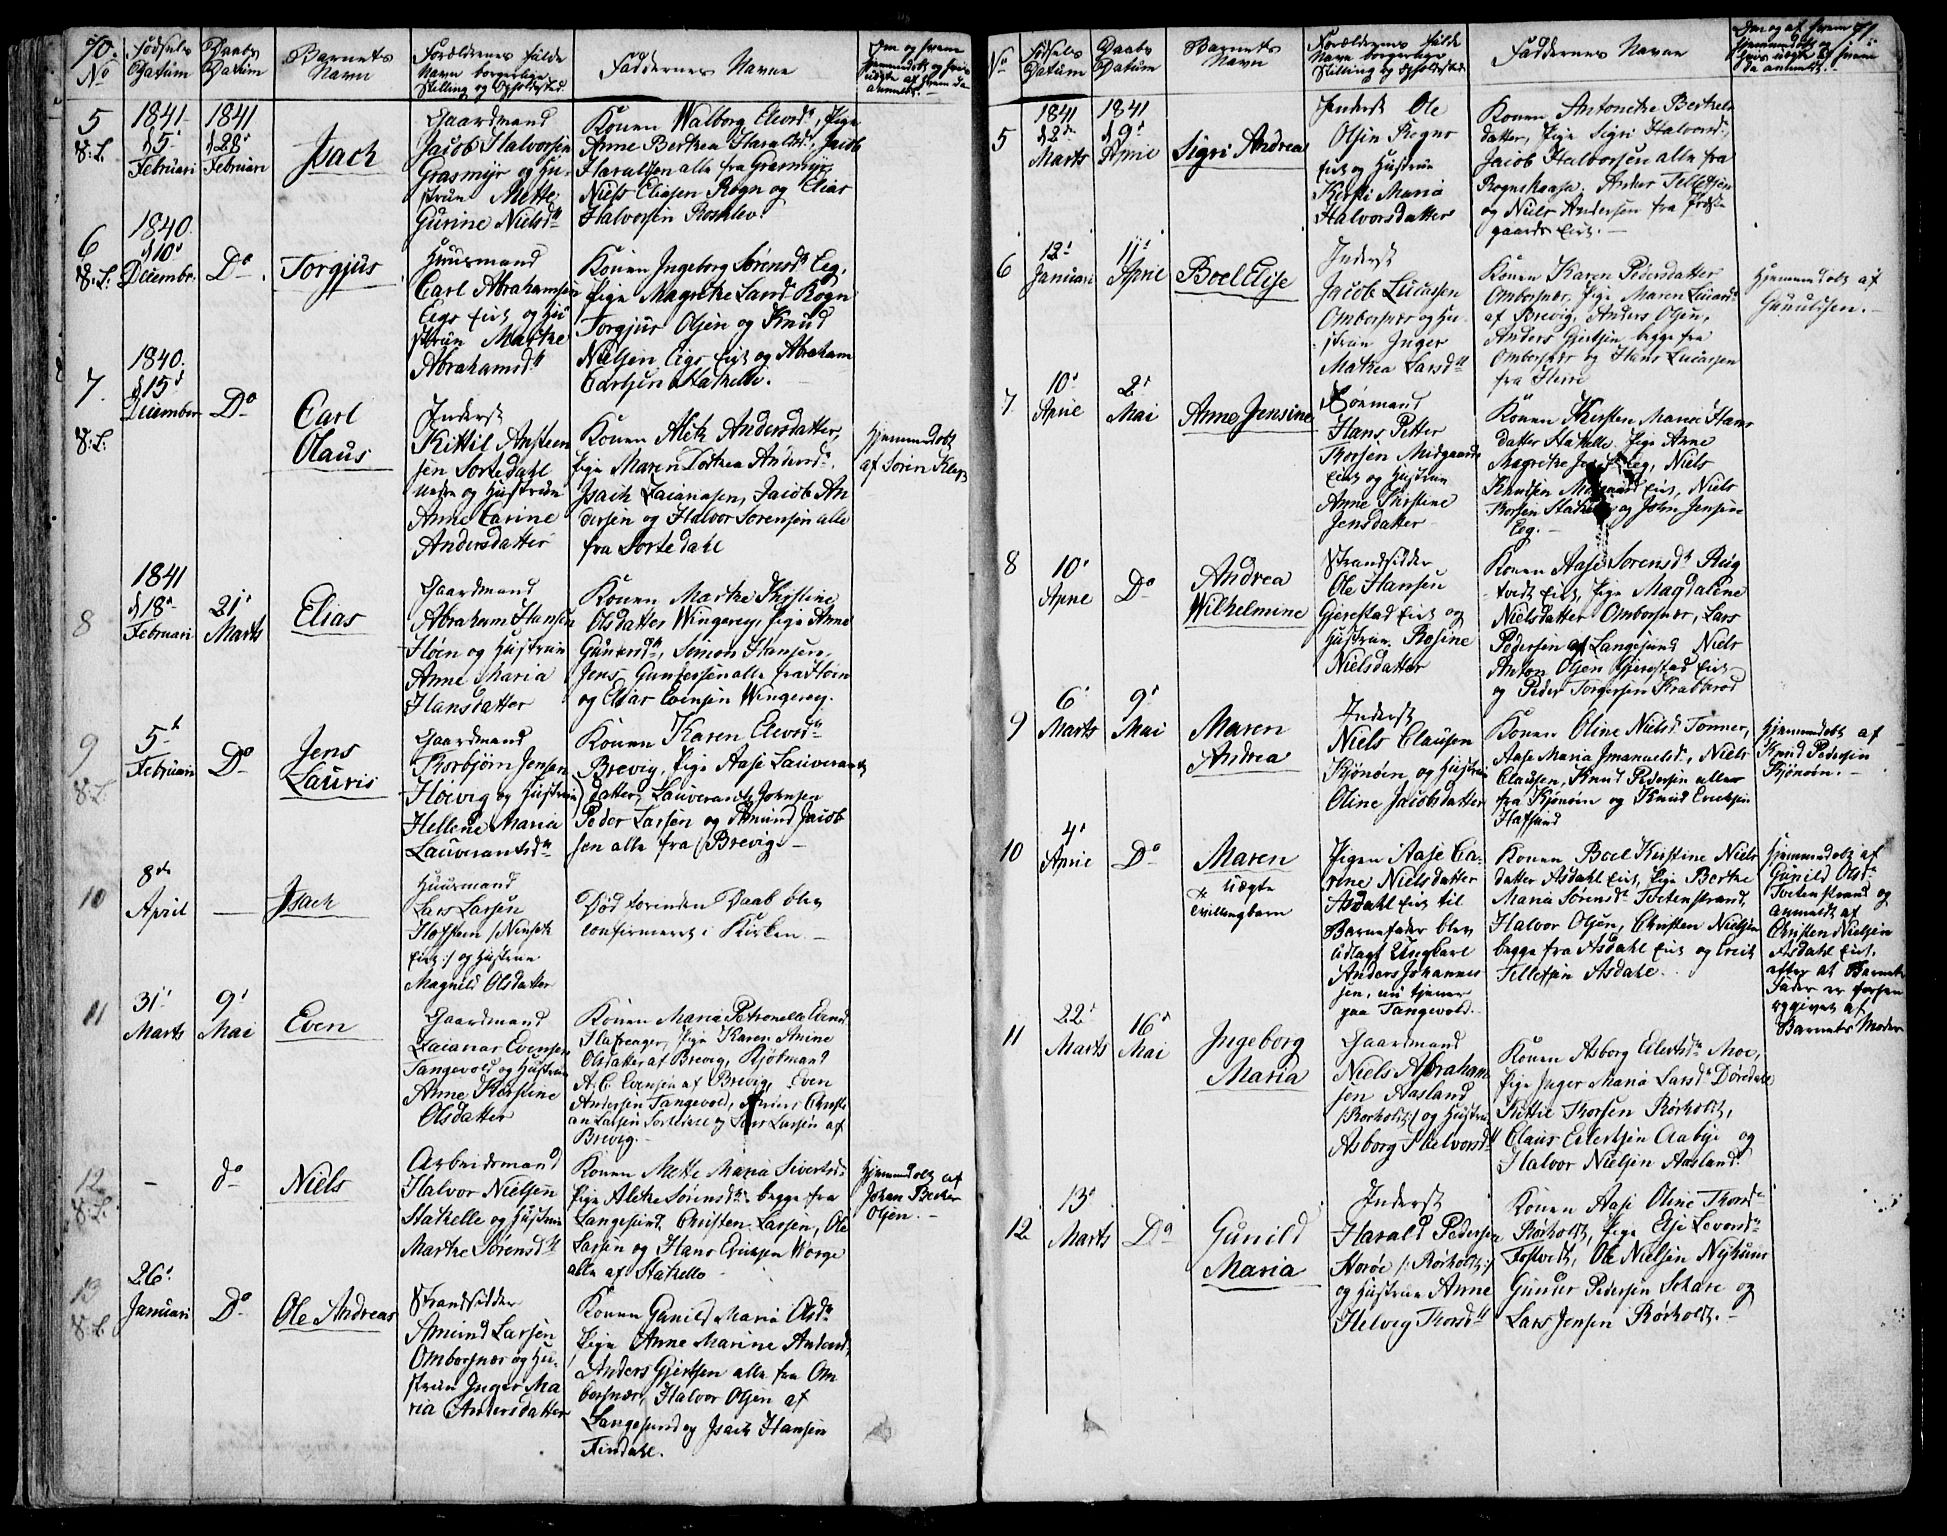 70.
No
Fødsels
Datum
Daabs
Datum
Barnets
Navn
Forældrenes fulde
Navn borgerlige
Stilling og Opholdssted.
Faddernes Navne
Om og hvem
hjemmedøbt
5
1841
d 5t
Februari
1841
d 28t
Februari
Isach
Gaardmand
Jacob Halvorsen
Grasmyr og Hu-
strue Mette
Gurine Nielsdtr
Konen Walborg Elevsd., Pige
Anne Berthea Haraldsd., Jacob
Haraldsen alle fra Grasmyr,
Niels Eliasen Rogn og Elias
Halvorsen Rosklev.
6
1840
d 10t
Decembr.
Do
Torgjus
Huusmand
Carl Abrahamsen
Eegs Eiet og Hu
strue Marthe
Abrahamsd.
Konen Ingeborg Sørensd. Eeg,
Pige Magrethe Land Rogn
Torgjus Olsen og Knud
Nielsen Eigs Eiet og Abraham
Carlsen Stathelle.
7.
1840.
d 15d
December
Do
Carl
Olaus
Inderst
Kittil Ansteen
sen Sortedahl
og Hustrue
Anne Carine
Andersdatter
Konen Aleth Andersdatter,
Pige Maren Dorthea Andersd.,
Isach Zaiariasen, Jacob An
dersen og Halvor Sørensen alle
fra Sortedahl
Hjemmedøbt
af Søren Klep
8
1841
d 18t
Februari
21t
Marts
Elias
Gaardmand
Abraham Hansen
Høen og Hustrue
Anne Maria
Hansdatter
Konen Marthe Kristine
Olsdatter Wingerey, Pige Anne
Gundersd., Simon Hansen,
Jens Gundersen alle fra Høen
og Elias Evensen Wingerey.
9
5t
Februari
Do
Jens
Lauris
Gaardmand
Thorbjørn Jensen
Høivig og Hustrue
Hellene Maria
Lauverantsd.
Konen Karen Elevsd.
Brevig, Pige Aase Lauverants
datter, Lauverants Johnsen
Peder Larsen og Amund Jacob
sen alle fra Brevig. –
10
8de
April
Isach
Huusmand
Lars Larsen
Eiet :/ og Hustrue
Magnild Olsdatter
Død førenden Daab blev
confirmeret i Kirken –
11
31t
Marts
9t
Mai
Even
Gaardmand
Zaiarias Evensen
Tangevold og Hustrue
Anne Kirstine
Olsdatter
Konen Maria Petronella Evend.
Pige Karen Amine
Olsdatter af Brevig, Kjøbmand
A. C. Evensen af Brevig, Even
Andersen Tangevold, Christi
an Larsen Sortedal og Lars Larsen af
Brevig. –
12
–
do
Niels
Arbeidsmand
Halvor Nielsen
Stathelle og Hustrue
Marthe Sørensd.
Konen Mette Maria Sivertsd.
Pige Alethe Sørensd. begge fra
Langesund, Christen Larsen, Ole
Larsen og Hans Ericksen Worge
alle af Stathelle
Hjemmedøbt af
Johan Becker
Olsen. –
13
26t
Januari
Do
Ole Andreas
Strandsidder
Amund Larsen
Ombordsnæs og Hu-
strue Inger Ma
ria Andersdatter
Konen Gunild Maria Olsd.
Pige Anne Marine Andersd.
Anders Gjertsen alle fra Om
bordsnæs, Halvor Olsen af
Langesund og Isach Hansen
Findahl.
71.
No
Fødsels
Datum
Daabs
Datum
Barnets
Navn
Forældrenes fulde
Navn borgerlige
Stilling og Opholdssted
Faddernes Navne
5
1841
d 2de
Marts
1841
d 9t
Aprile
Sigri Andrea
Inderst Ole
Olsen Rogns
Eiet og Hustrue
Kersti Maria
Halvorsdatter
Konen Antonethe Berthels
datter, Pige Sigri Halvorsd.,
Jacob Halvorsen alle fra
Rognskaase, Anders Tellefsen
og Niels Andersen fra Præste
gaards Eiet. –
6
12t
Januari
11t
Aprile
Boel Elise
Inderst
Jacob Lucassen
Ombordsnæs og Hu-
strue Inger
Mathea Larsd.
Konen Karen Pedersdatter
Ombordsnæs, Pige Maren Lucasd.
af Brevig, Anders Olsen,
Anders Gjertsen begge fra
Ombordsnæs og Hans Lucassen
fra Heire
Hjemmedøbt af
Gunulfsen. –
7
10t
Aprile
2t
Mai
Anne Jensine
Sømand
Hans Petter
Thorsen Midgaards
Eiet og Hustrue
Anne Kirstine
Jensdatter
Konen Kirsten Maria Hans
datter Stathelle, Pige Anne
Magrethe Eeg, Niels
Knudsen Midgaard Eiet, Niels
Thorsen Stathelle og John Jensen
Eeg. –
8
10t
Aprile
Do
Andrea
Wilhelmine
Strandsidder
Ole Hansen
Gjerestad Eiet og
Hustrue Rosine
Nielsdatter
Konen Aase Sørensd. Rug
tvedt Eiet, Pige Magdalene
Nielsdatter Ombordsnæs, Lars
Pedersen af Langesund Niels
Anton Olsen Gjerestad Eiet
og Peder Torgersen Krabberød
9
6t
Marts
9t
Mai
Maren
Andrea
Inderst
Niels Clausen
Kjønøen og Hustrue
Oline Jacobsdatter
Konen Oline Nielsd. Tonner,
Aase Maria Imanuelsd., Niels
Clausen, Knud Pedersen alle
fra Kjønøen og Knud Ericksen
Hafsund
Hjemmedøbt af
Knud Pedersen
Kjønøen. –
10
4t
Aprile
Do
Maren
uægte
tvillingbarn
Pigen Aase Ca-
rine Nielsdatter
Asdahl Eiet til
Barnefader blev
udlagt Ungkarl
Anders Johannes
sen, nu tjener
paa Tangevold.
Konen Boel Kirstine Niels
datter Asdahl Eiet, Pige Berthe
Maria Sørensd. Tvetenstrand,
Halvor Olsen, Christen Nielsen
begge fra Asdahl Eiet og Erick
Tellefsen Asdahl.
Hjemmedøbt af
Gunild Olsd.
Tvetenstrand og
anmeldt af
Christen Nielsen
Asdahl Eiet,
efter at Barnets
Fader er
opgivet af
Barnets Moder
11
22t
Marts
16t
Mai
Ingeborg
Maria
Gaardmand
Niels Abraham
sen Aasland
/:Rørholdt:/ og Hustrue
Asborg Halvorsd.
Konen Asborg Eilertsd. Moe,
Pige Inger Maria Larsd. Døredale
Kittil Thorsen Rørholdt,
Claus Eilertsen Aabye og
Halvor Nielsen Aasland.
12
13t
Marts
Do
Gunild
Maria
Inderst
Harald Pedersen
Storøe /:Rørholdt:/
og Hustrue Anne
Helvig Thorsd.
Konen Aase Oline Thorsd.
Rørholdt, Pige Else Levorsd.
Fostvedt, Ole Nielsen Nyhuus
Gunder Pedersen Schare og
Lars Jensen Rørholdt. –